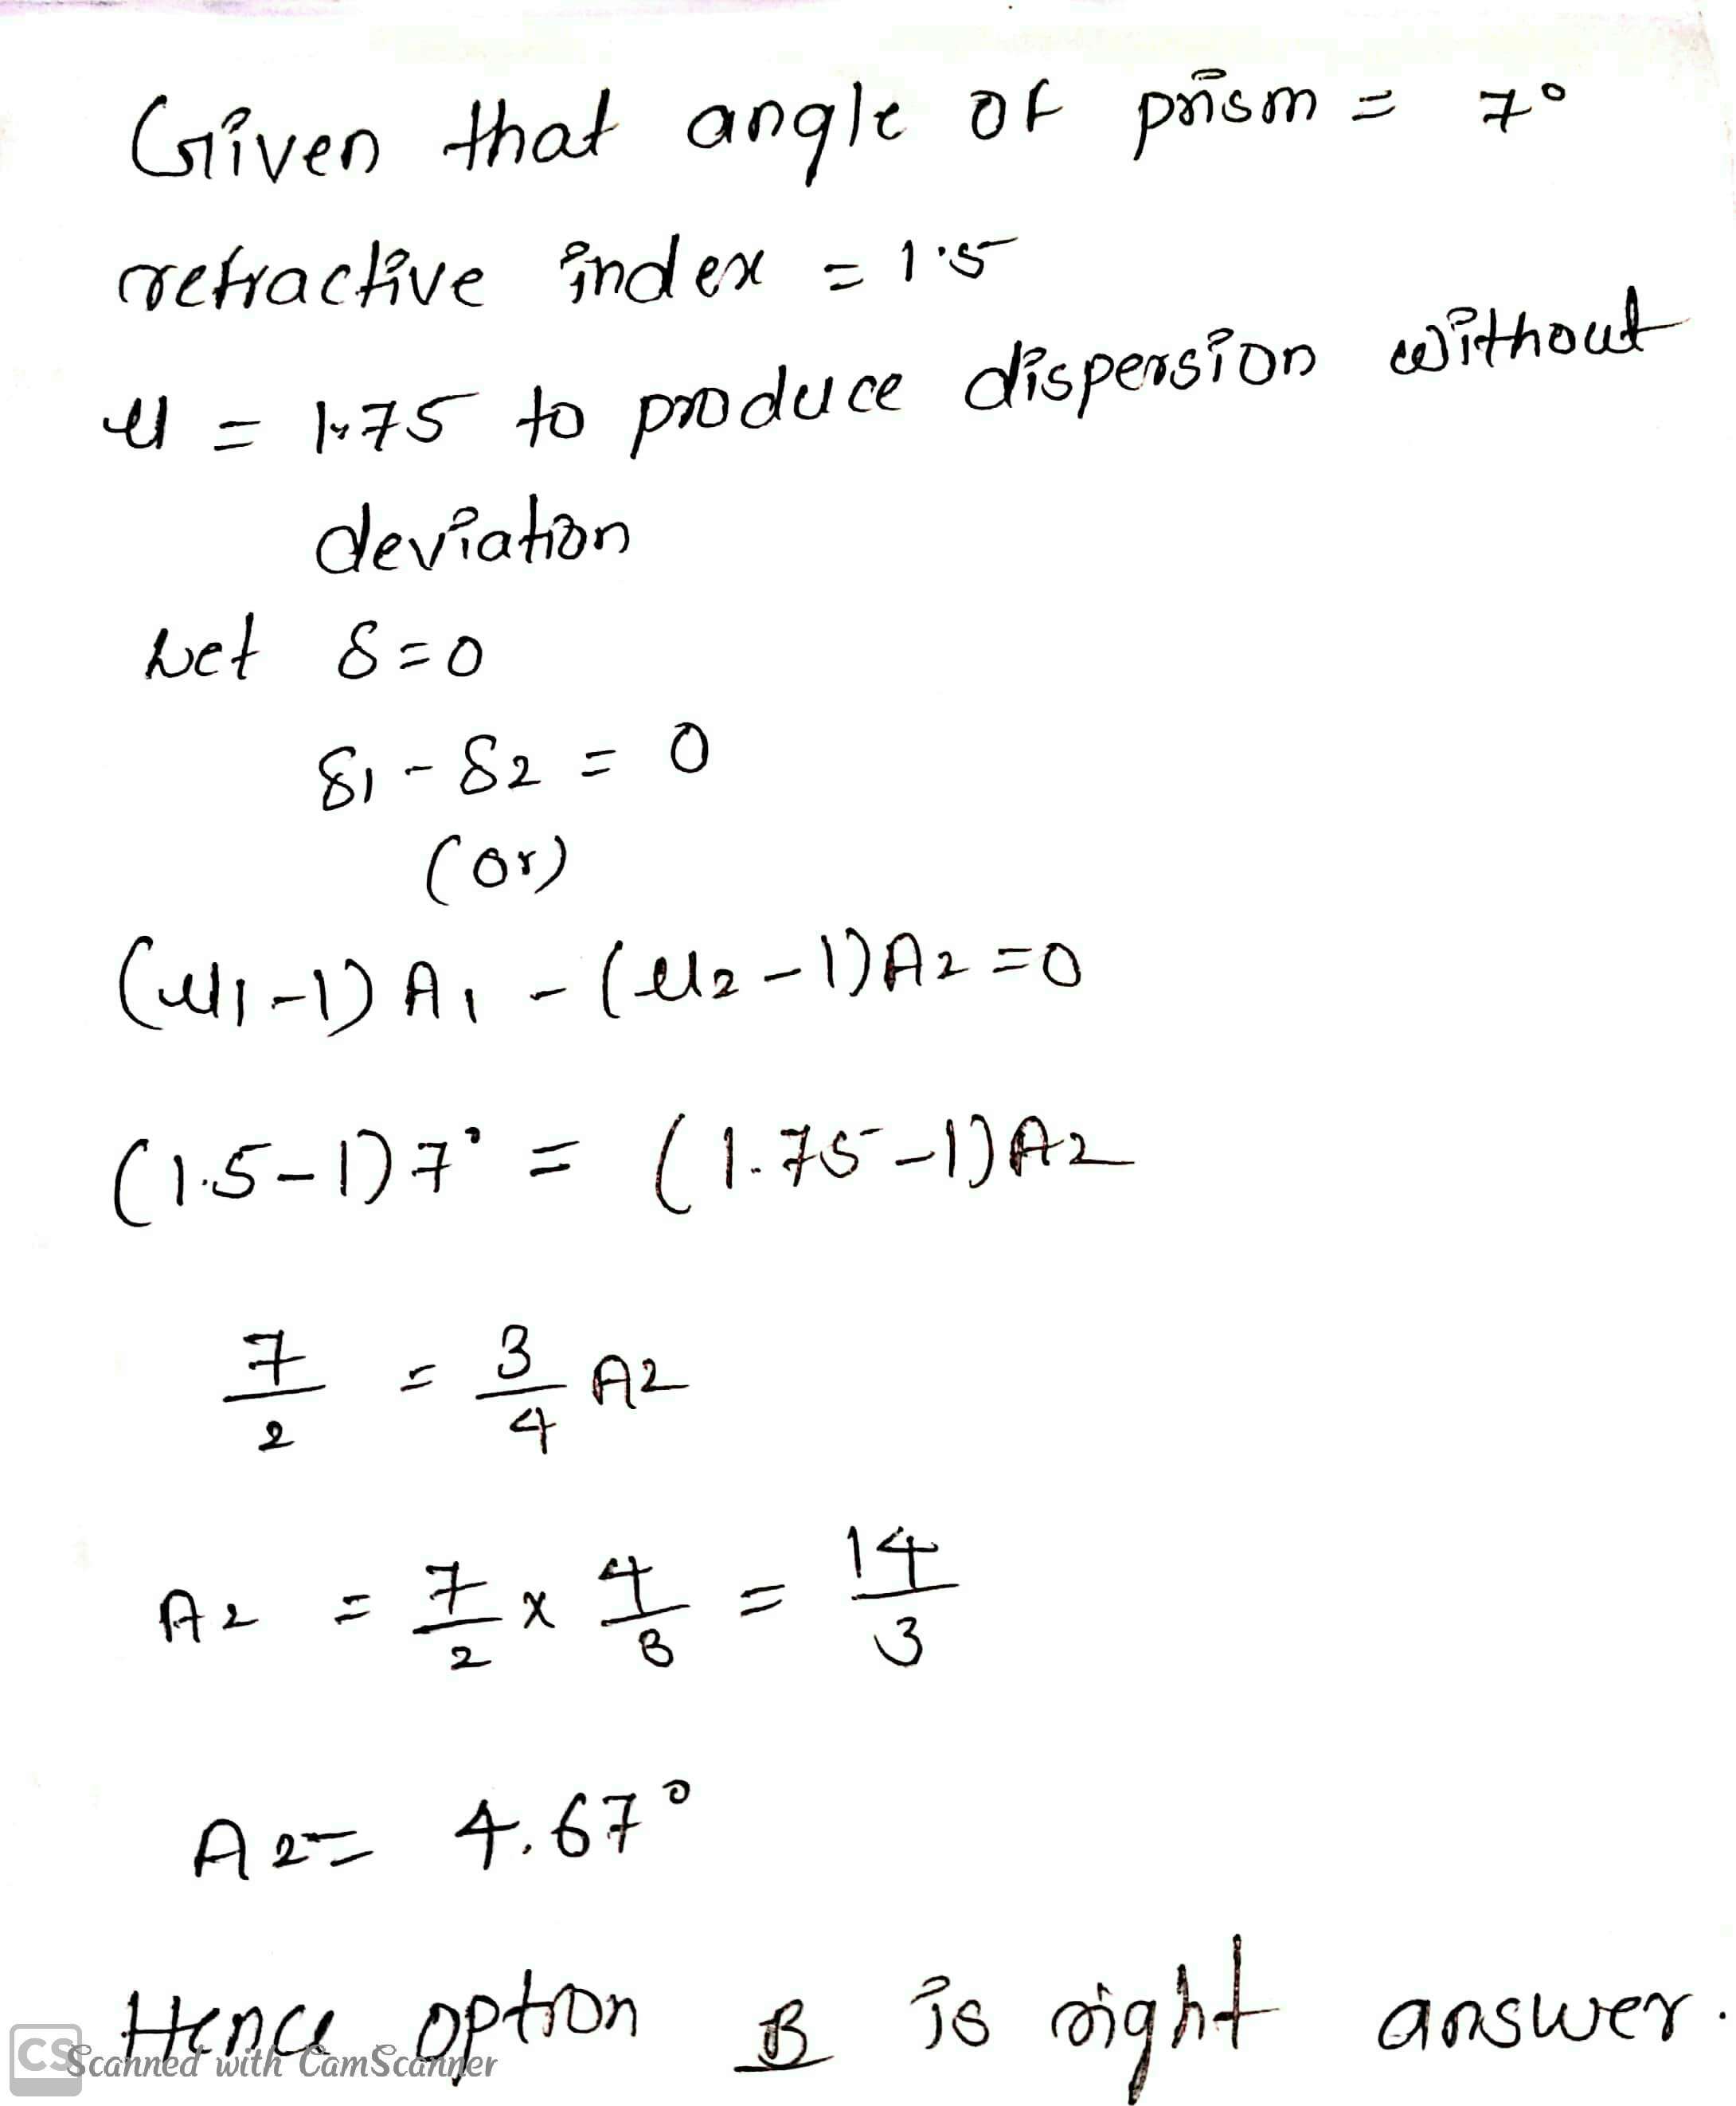 Given that angle of prism = 7°
refractive index = 1.5
μ = 1.75 to produce dispersion without
deviation
Net δ=0
δ1 - δ2 = 0
(or)
(μ1-1) A1 - (μ2-1)A2=0
(1.5-1)7° = (1.75-1)A2
7/2 = 3/4 A2
A2 = 7/2 x 4/3 = 14/3
A2= 4.67°
Hence option B is right answer.
CS Scanned with CamScanner